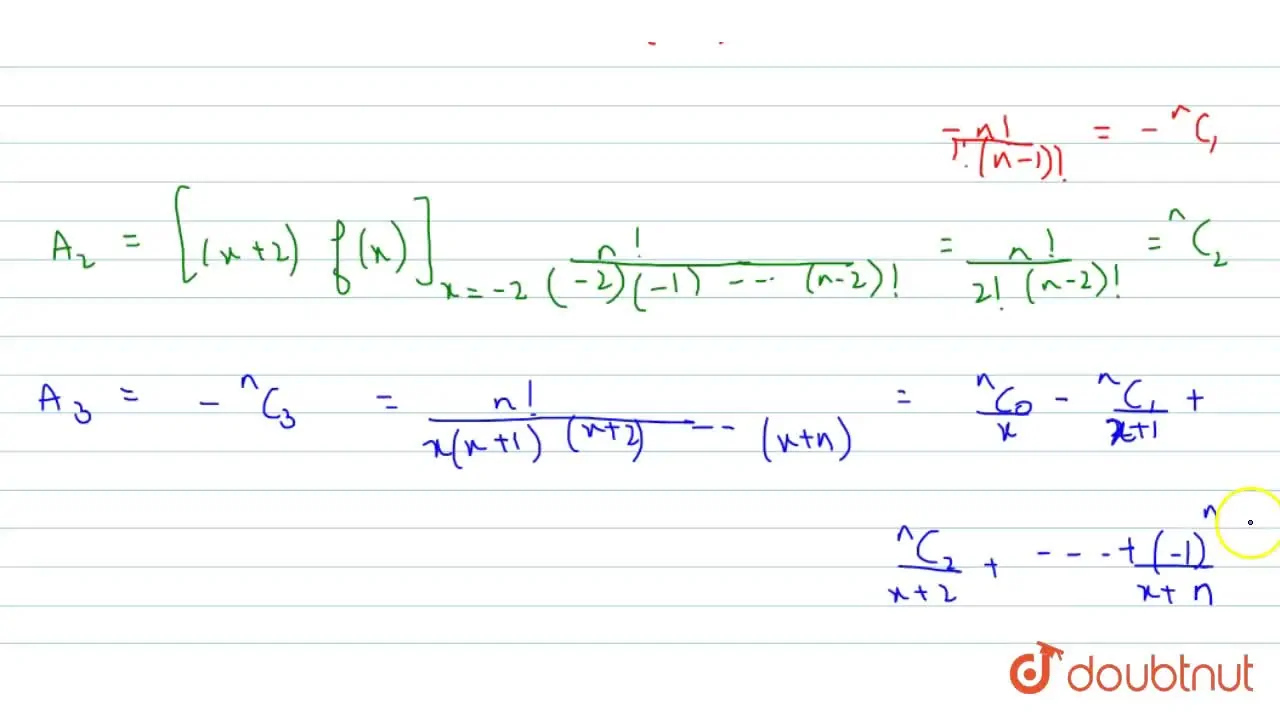 -n!/1!(n-1)! = - ⁿC₁
A₂ = [(x+2) f(x)]ₓ₌₋₂ n!/(-2)(-1) -- -- (n-2)! = n!/2!(n-2)! = ⁿC₂
A₃ = - ⁿC₃ = n!/x(x+1)(x+2) --- (x+n) = ⁿC₀/x - ⁿC₁/x+1 +
ⁿC₂/x+2 + ---+ (-1)ⁿ/x+n
doubtnut